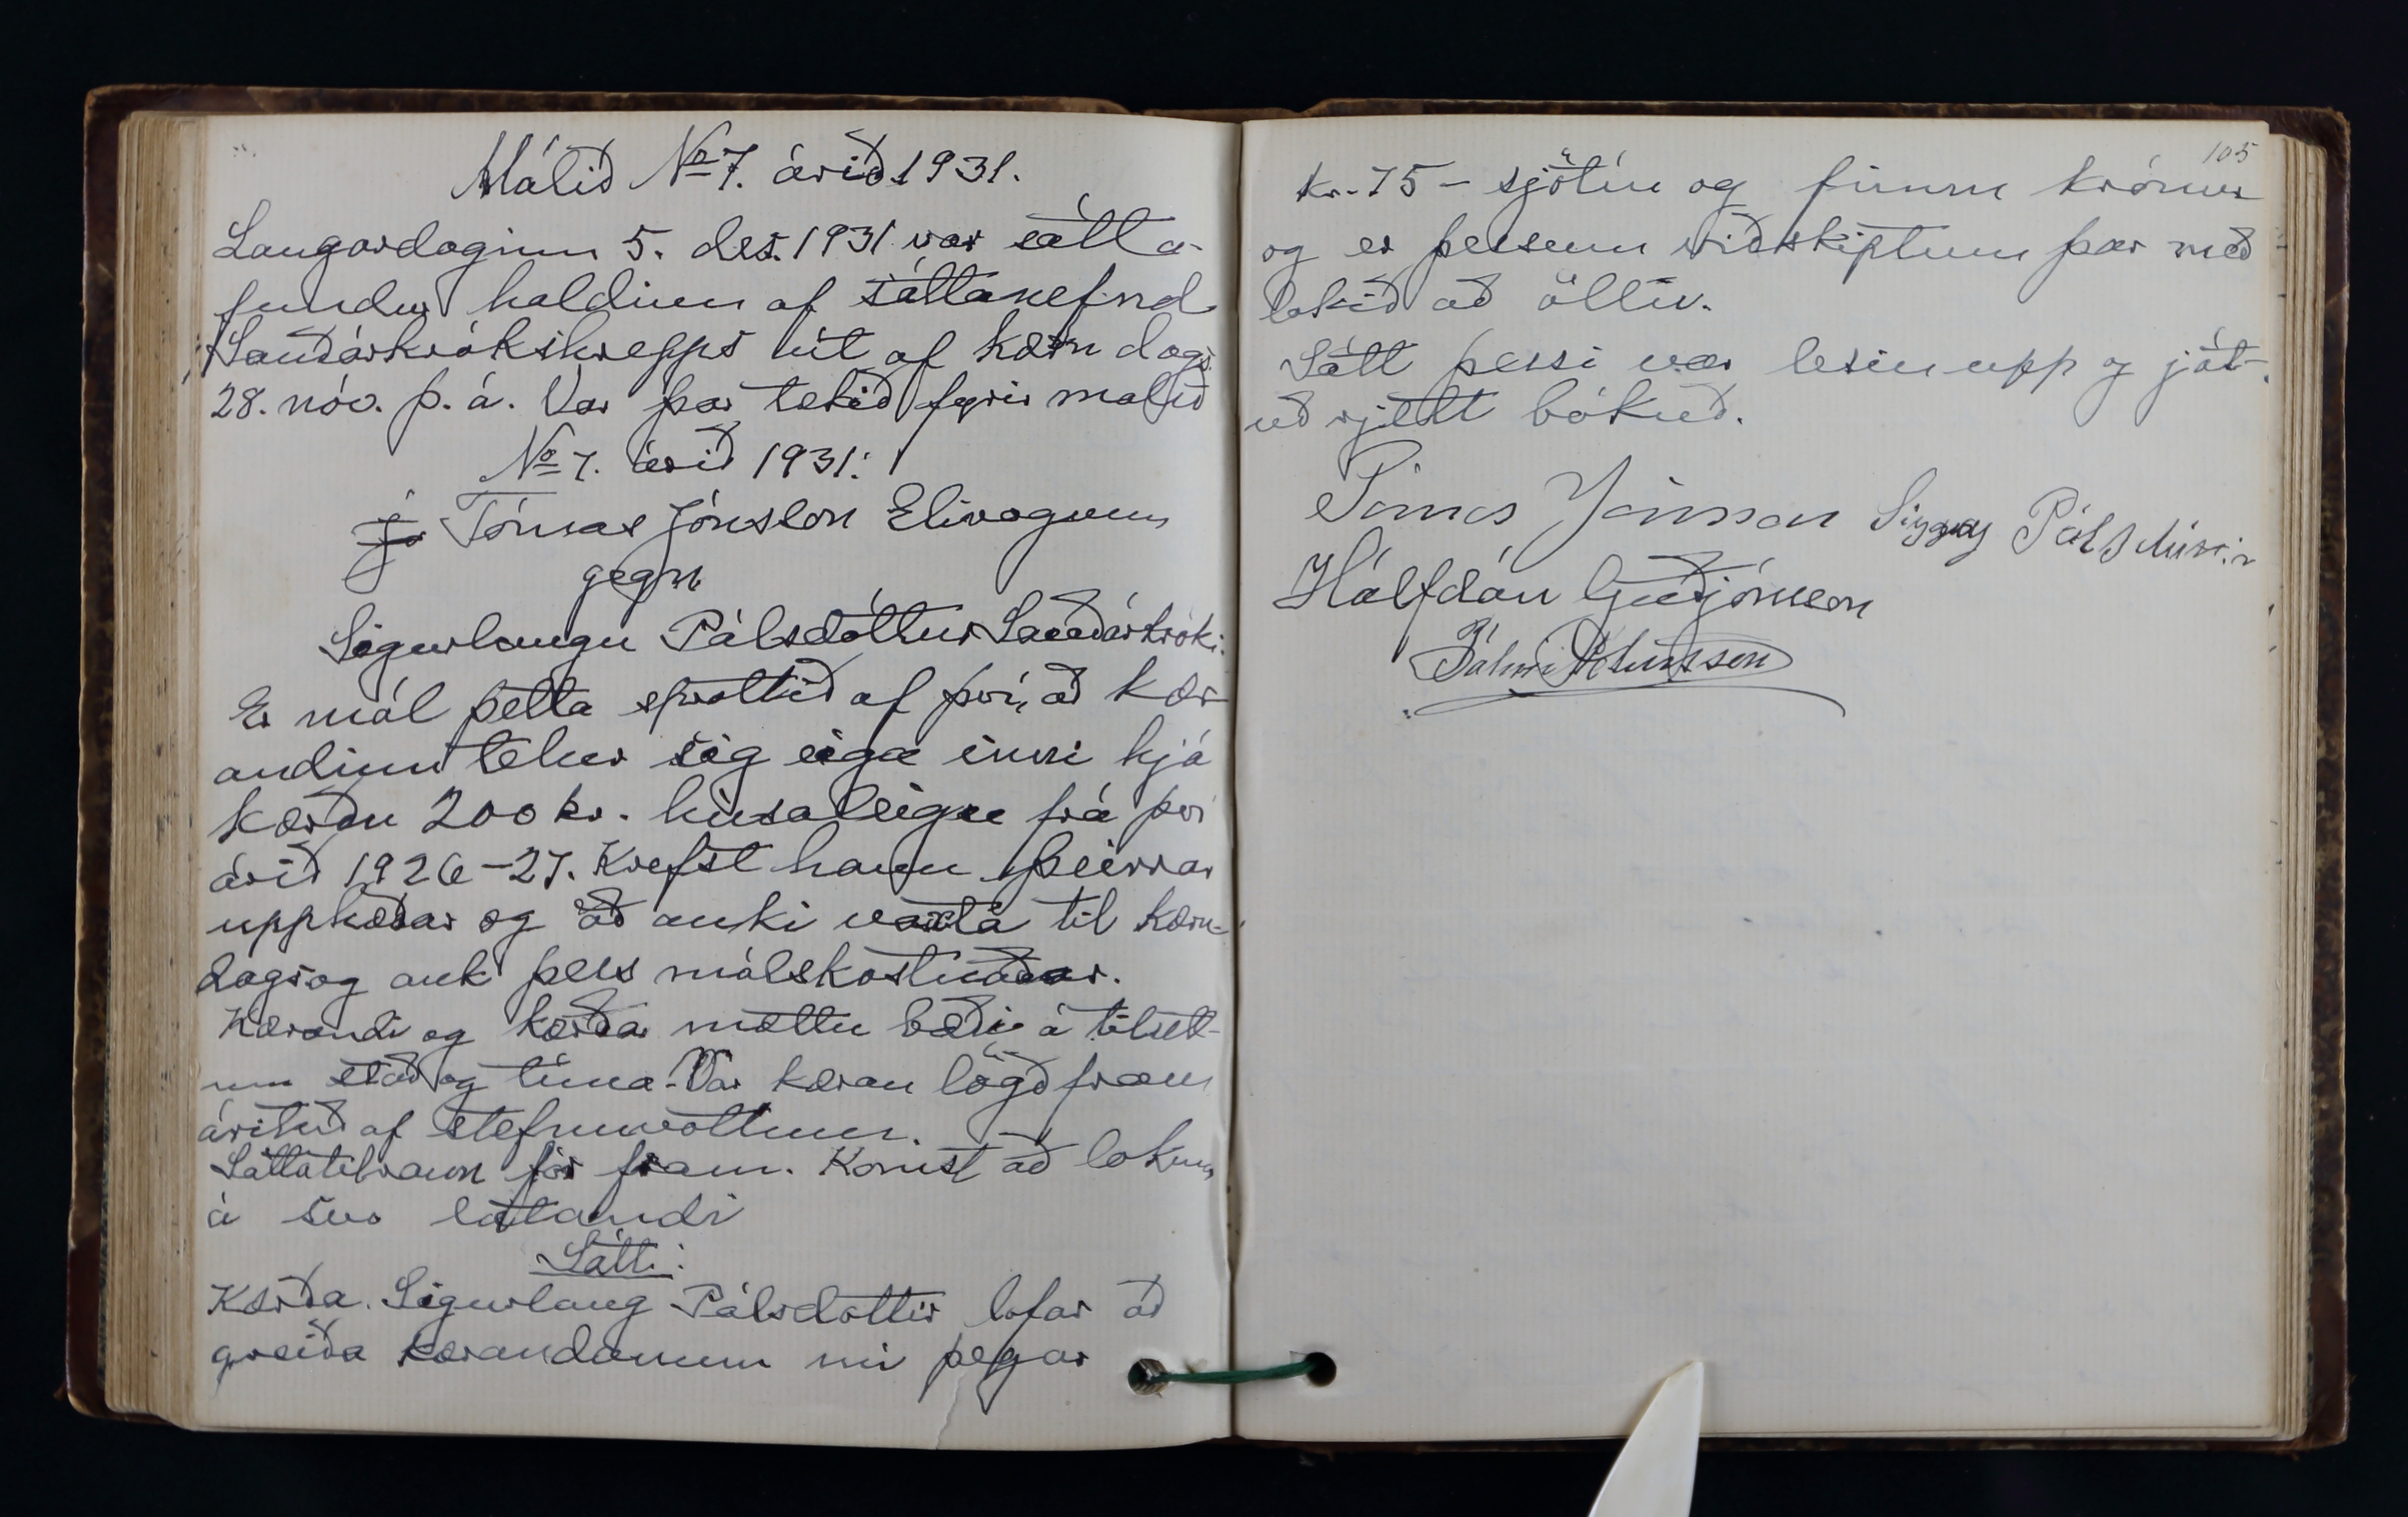 Málið No 7. árið 1931.
Laugardaginn 5. des. 1931 var sátta-
fundur haldinn af sáttanefnd
Sauðárkrókshrepps út af kæru dags.
28. nóv. þ. á. Var þar tekið fyrir málið
No 7. árið 1931:
Tómas Jónsson Elivogum
gegn
Sigurlaugu Pálsdóttur Sauðárkróki.
Er mál þetta sprottið af því, að kær-
andinn telur sig eiga inni hjá
kærðu 200 kr. húsaleigu frá því
árið 1926-27. Krefst hann þeirrar
upphæðar og að auki vaxta til kæru-
dags og auk þess málskostnaðar.
Kærandi og kærða mættu bæði á tilsett-
um stað og tíma. Var kæran lögð fram
árituð af stefnuvottum.
Sáttatilraun fór fram. Komst að lokum
á svo látandi
Sátt:
Kærða. Sigurlaug Pálsdóttir lofar að
greiða kærandanum nú þegar
105
kr. 75 - sjötíu og fimm krónur
og er þessum viðskiptum þar með
lokið að öllu.
Sátt þessi var lesin upp og ját-
uð rjett bókuð.
Tómas Jónsson Pálsdóttir
Hálfdán Guðjónsson
Pálmi